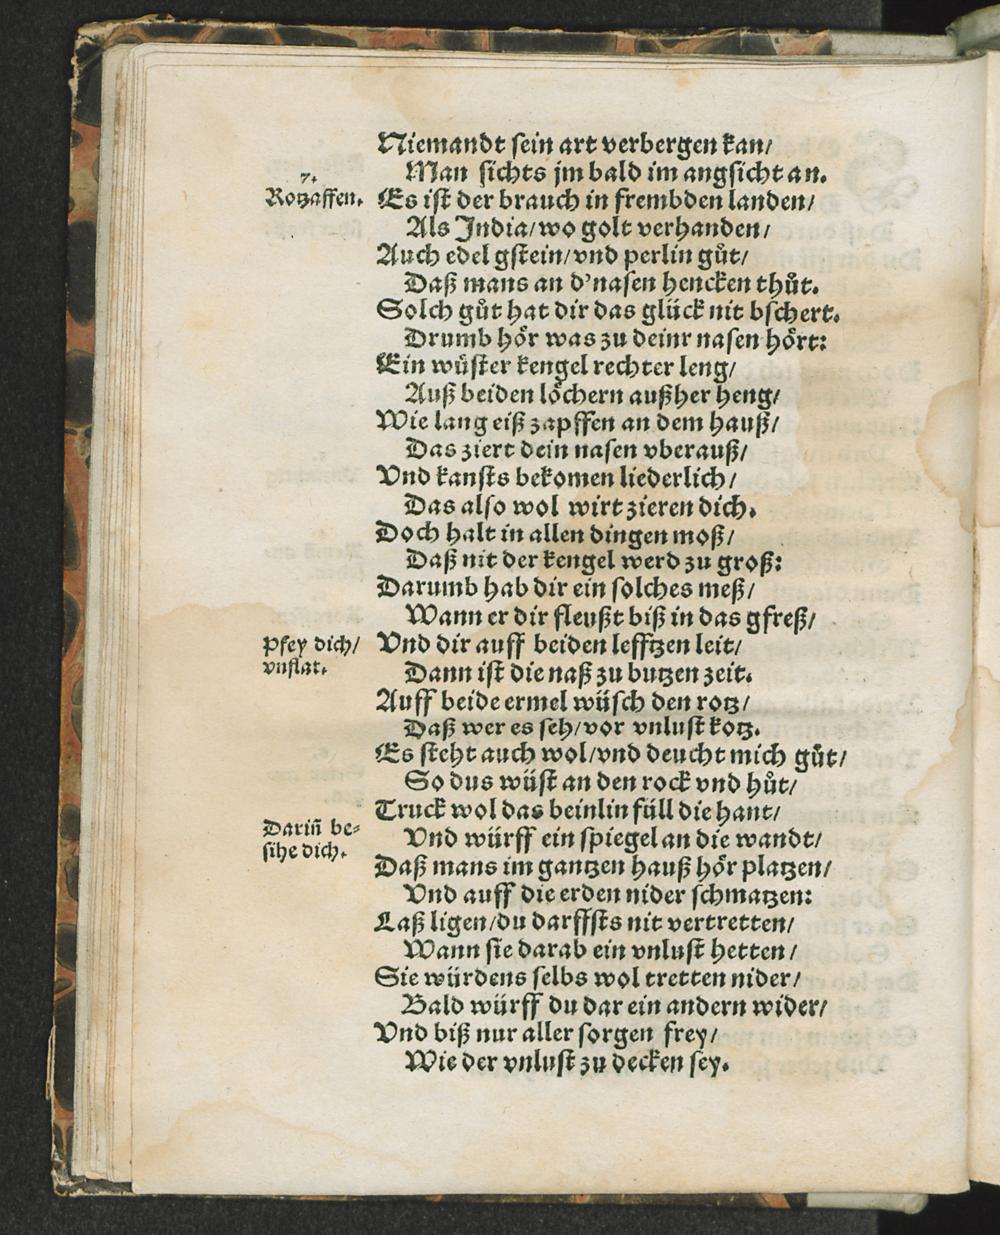 Niemandt sein art verbergen kan/
Man sichts jm bald im angsicht an.
7.
Rotzaffen.
Es ist der brauch in frembden landen/
Als India/ wo golt verhanden/
Auch edel gstein/ vnd perlin guͦt/
Daß mans an d'nasen hencken thuͦt.
Solch guͦt hat dir das glück nit bschert.
Drumb hoͤr was zu deinr nasen hoͤrt:
Ein wuͤster kengel rechter leng/
Auß beiden loͤchern außher heng/
Wie lang eiß zapffen an dem hauß/
Das ziert dein nasen vberauß/
Vnd kansts bekomen liederlich/
Das also wol wirt zieren dich.
Doch halt in allen dingen moß/
Daß nit der kengel werd zu groß:
Darumb hab dir ein solches meß/
Wann er dir fleußt biß in das gfreß/
Pfey dich/
vnflat.
Vnd dir auff beiden lefftzen leit/
Dann ist die naß zu butzen zeit.
Auff beide ermel wüsch den rotz/
Daß wer es seh/ vor vnlust kotz.
Es steht auch wol/ vnd deucht mich guͦt/
So dus wüst an den rock vnd huͦt/
Truck wol das beinlin füll die hant/
Dariñ be⸗
sihe dich.
Vnd würff ein spiegel an die wandt/
Daß mans im gantzen hauß hoͤr platzen/
Vnd auff die erden nider schmatzen:
Laß ligen/ du darffsts nit vertretten/
Wann sie darab ein vnlust hetten/
Sie würdens selbs wol tretten nider/
Bald würff du dar ein andern wider/
Vnd biß nur aller sorgen frey/
Wie der vnlust zu decken sey.